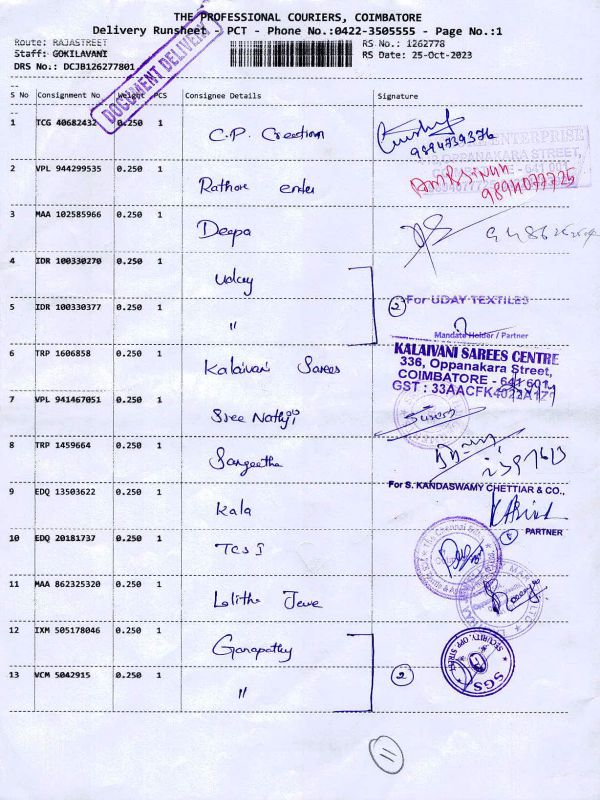 THE PROFESSIONAL COURIERS, COIMBATORE
Delivery Runsheet - PCT - Phone No.:0422-3505555 - Page No.:1
Route: RAJASTREET
RS No.: 1262778
Staff: GOKILAVANI
RS Date: 25-Oct-2023
DRS No.: DCJB126277801
DOCUMENT DELIVERY
S No Consignment No Weight PCS Consignee Details Signature
1 TCG 40682432 0.250 1 C.P. Creation
9894739376
ENTERPRISE
OPPANAKARA STREET,
2 VPL 944299535 0.250 1 Rathore enter
AMRSINGH
9894077725
3 MAA 102585966 0.250 1 Deepa
4 IDR 100330270 0.250 1 Uday
2 For UDAY TEXTILES
5 IDR 100330377 0.250 1 "
Mandate Holder / Partner
6 TRP 1606858 0.250 1 Kalaivani Sarees
KALAIVANI SAREES CENTRE
336, Oppanakara Street,
COIMBATORE - 641 001
GST : 33AACFK4022A171
7 VPL 941467051 0.250 1 Sree Nathji
Suresh
8 TRP 1459664 0.250 1 Sangeetha
9 EDQ 13503622 0.250 1 Kala
For S. KANDASWAMY CHETTIAR & CO.,
PARTNER
10 EDQ 20181737 0.250 1 TCS I
The Chennai Silks
11 MAA 862325320 0.250 1 Lalitha Jewe
12 IXM 505178046 0.250 1 Ganapathy
SECURITY, OPP. STREET
SGS
13 VCM 5042915 0.250 1 "
2
11